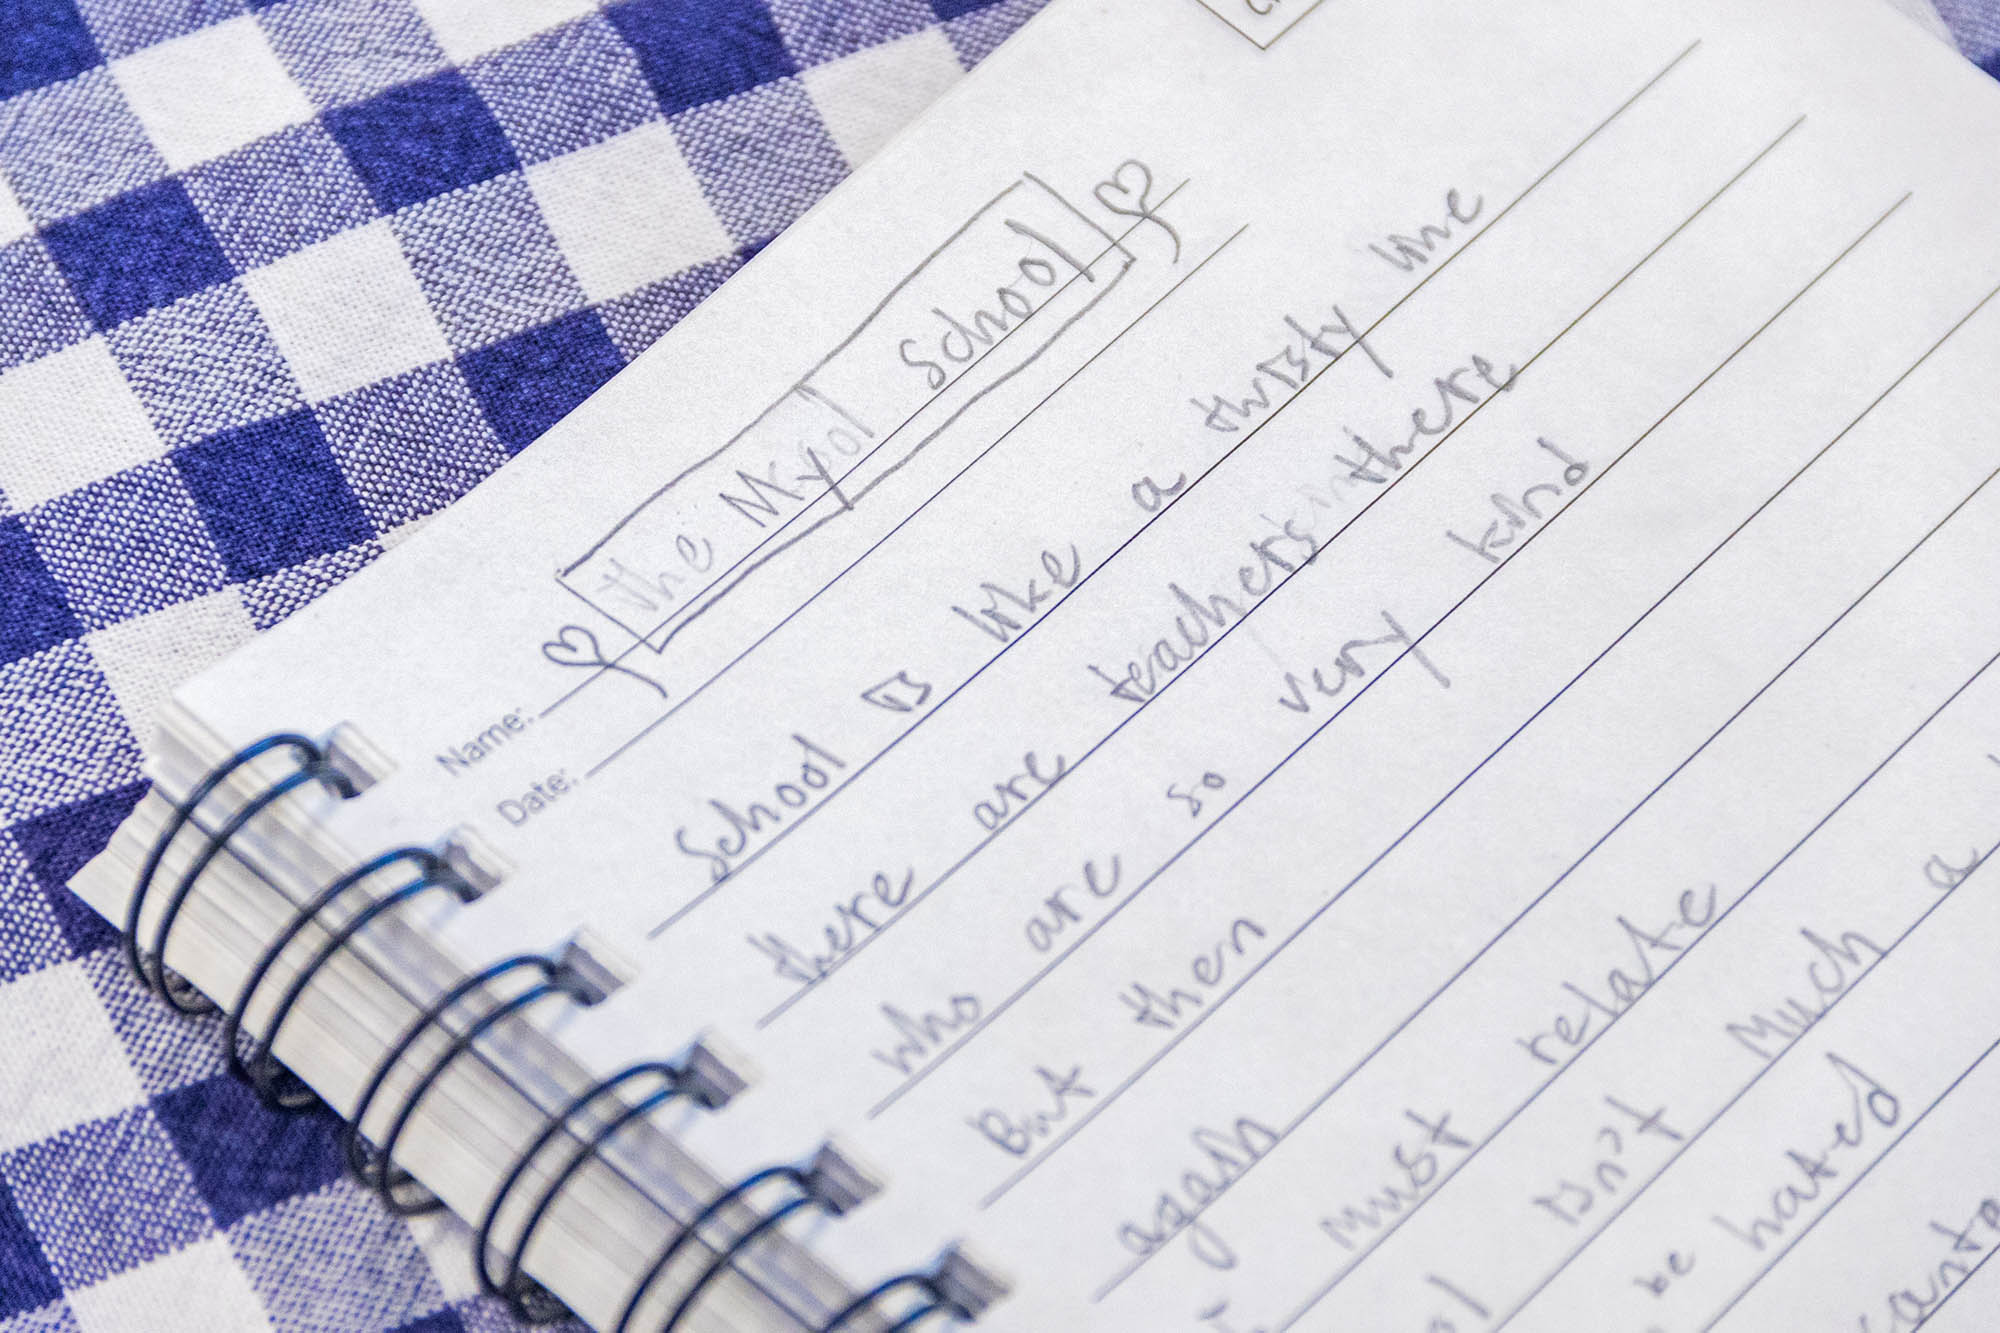 The Mkyol School
Name:
Date:
School is like a thirsty une
there are teachers in there
who are so very kind
But then
again
must relate
isn't much a
be hated